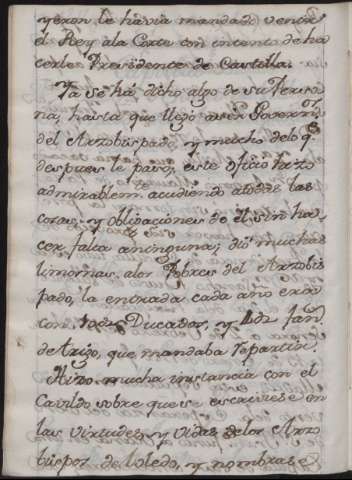 yeron le havia mandado venir
el Rey ala Corte con intento de ha
cerle Presidente de Castilla.
Ya se há dicho algo de su Perso
na, hasta que llegó a ser Govern.or
del Arzobispado, y mucho delo q.e
despues le pasó; este oficio hizo
admirablem. acudiendo atodas las
cosas, y obligaciones de el sin ha-
cer falta aninguna; dió muchas
limosnas, alos Pobres del Arzobis
pado, la entrada cada año era
con Ducados, y fan.
de trigo, que mandaba repartir.
Hizo mucha instancia con el
Cavildo sobre que se escriviese en
las virtudes, y vidas delos Arzo
bispos de toledo, y nombrase